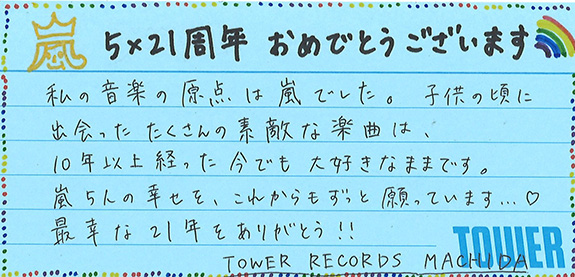 嵐 5×21周年 おめでとうございます
私の音楽の原点は嵐でした。子供の頃に
出会ったたくさんの素敵な楽曲は、
10年以上経った今でも大好きなままです。
嵐5人の幸せを、これからもずっと願っています…♡
最幸な21年をありがとう!!
TOWER
TOWER RECORDS MACHIDA